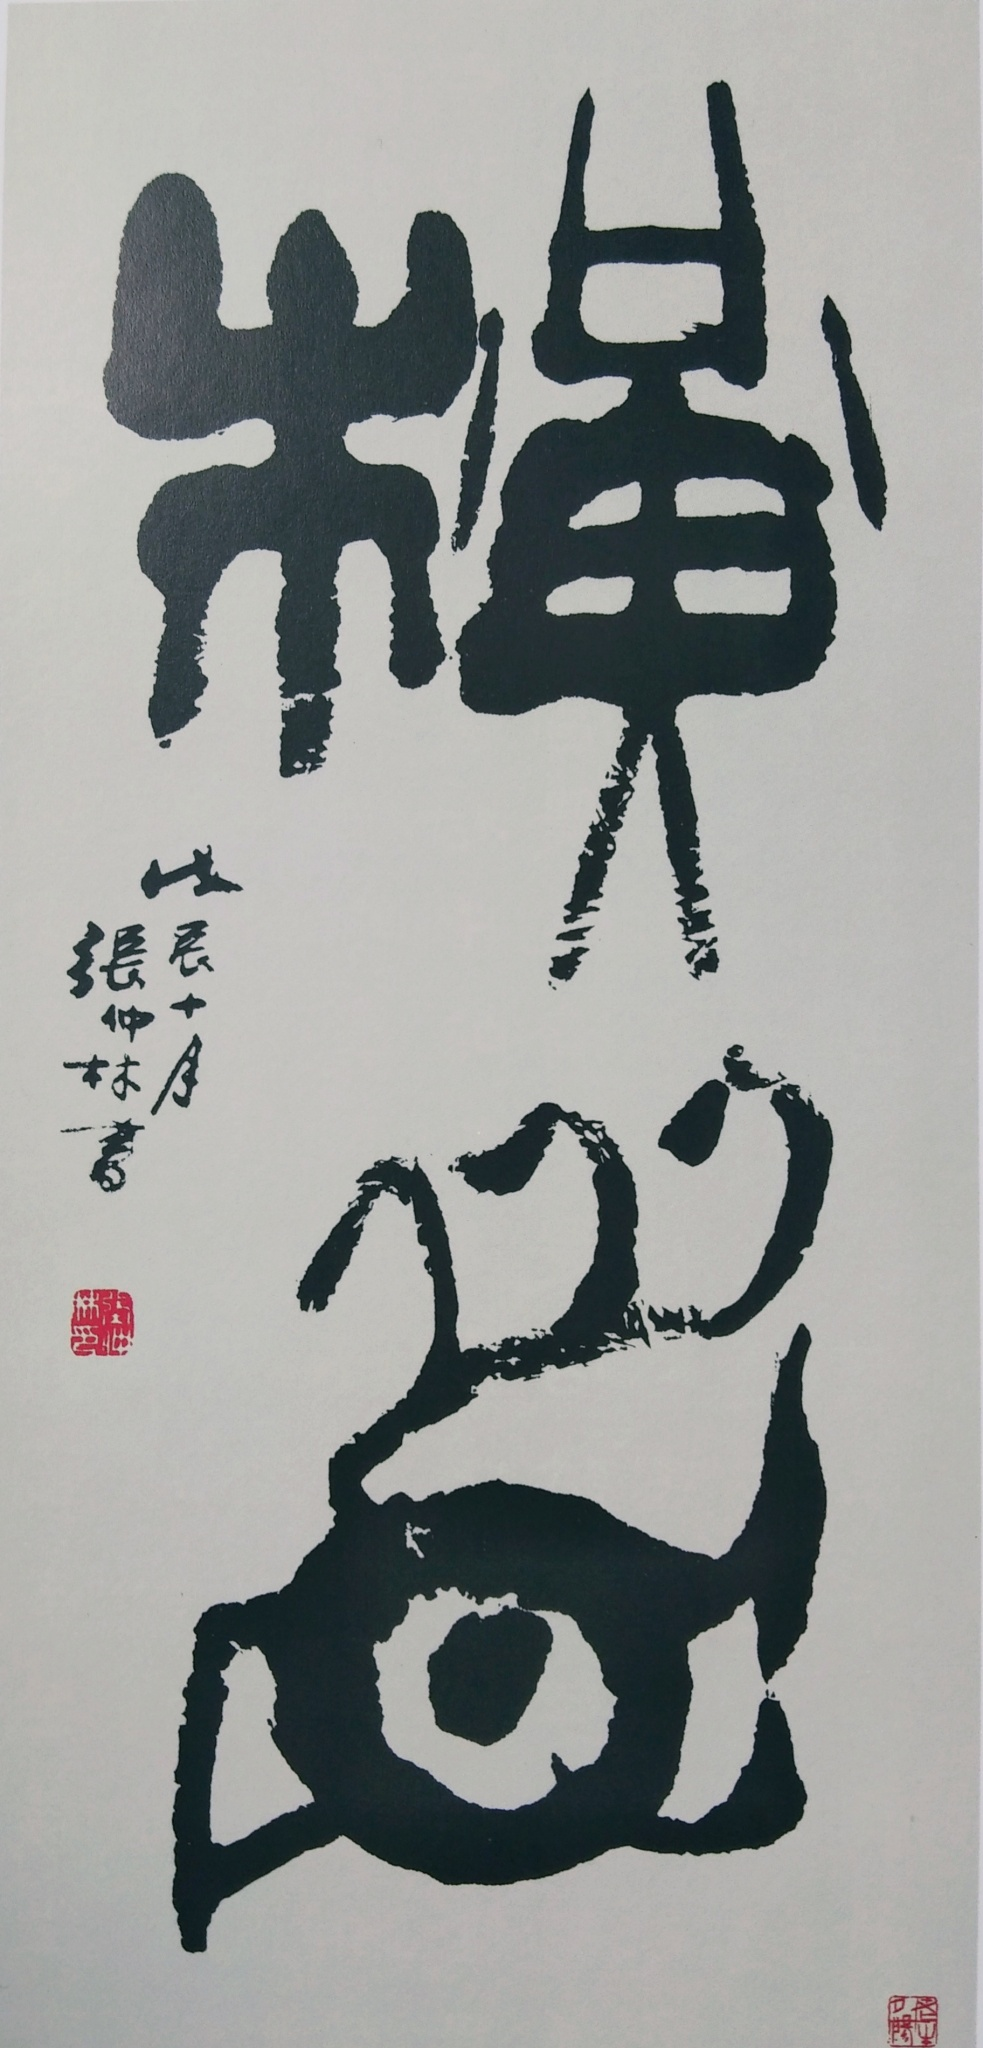 橫眉
戊辰十月
張仲林書